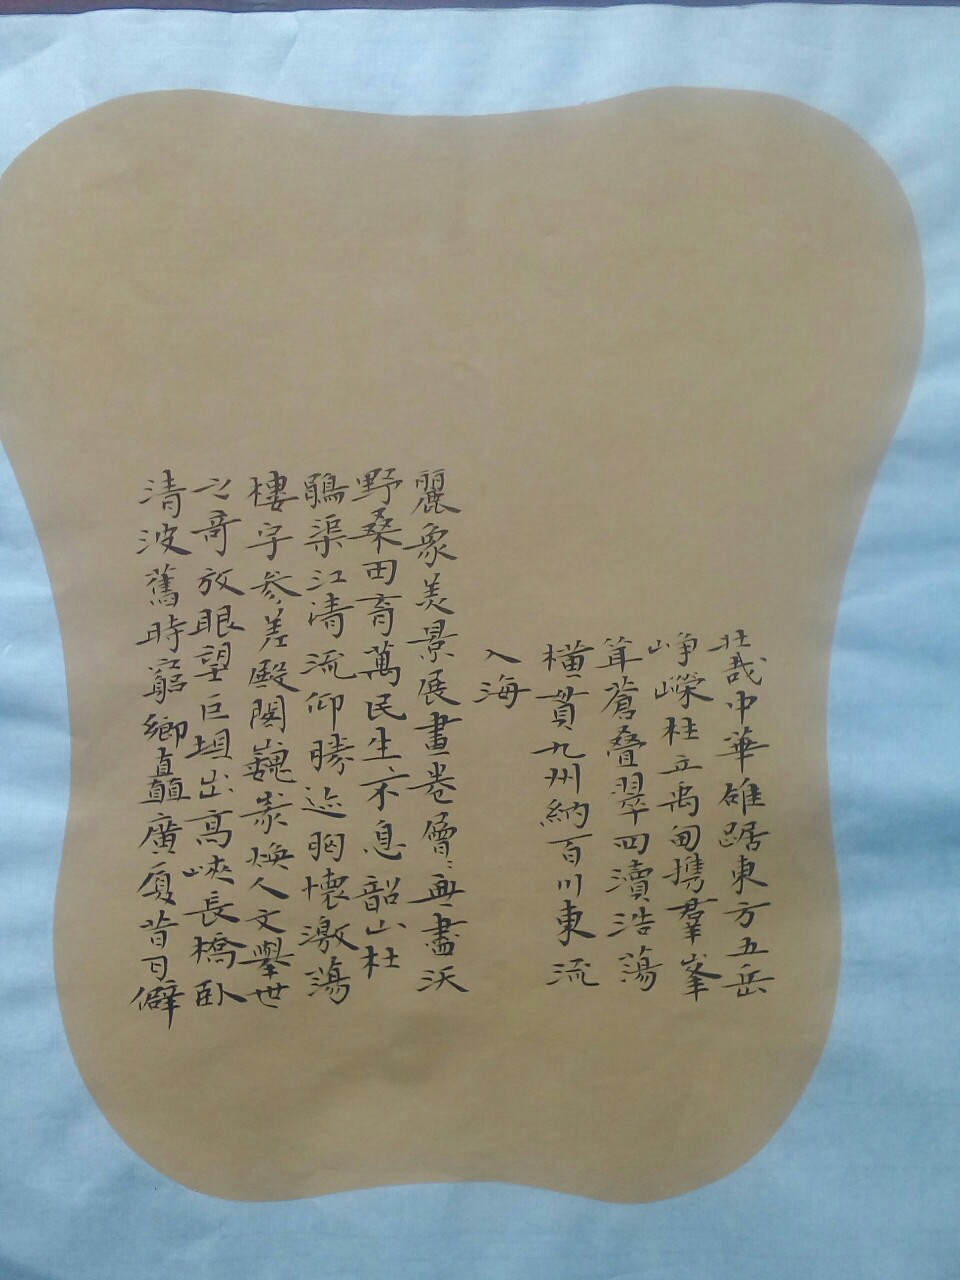 壯哉中華雄踞東方五岳
峥嶸柱立禹甸携羣峯
耸蒼叠翠四瀆浩蕩
橫貫九州納百川東流
入海
麗象美景展畫卷層〻無盡沃
野桑田育萬民生不息韶山杜
鵑渠江清流仰勝迹胸懷激蕩
樓宇參差殿閣巍峩煥人文舉世
之哥放眼望巨垻出高峽長橋卧
清波舊時窮鄉矗廣厦昔日僻